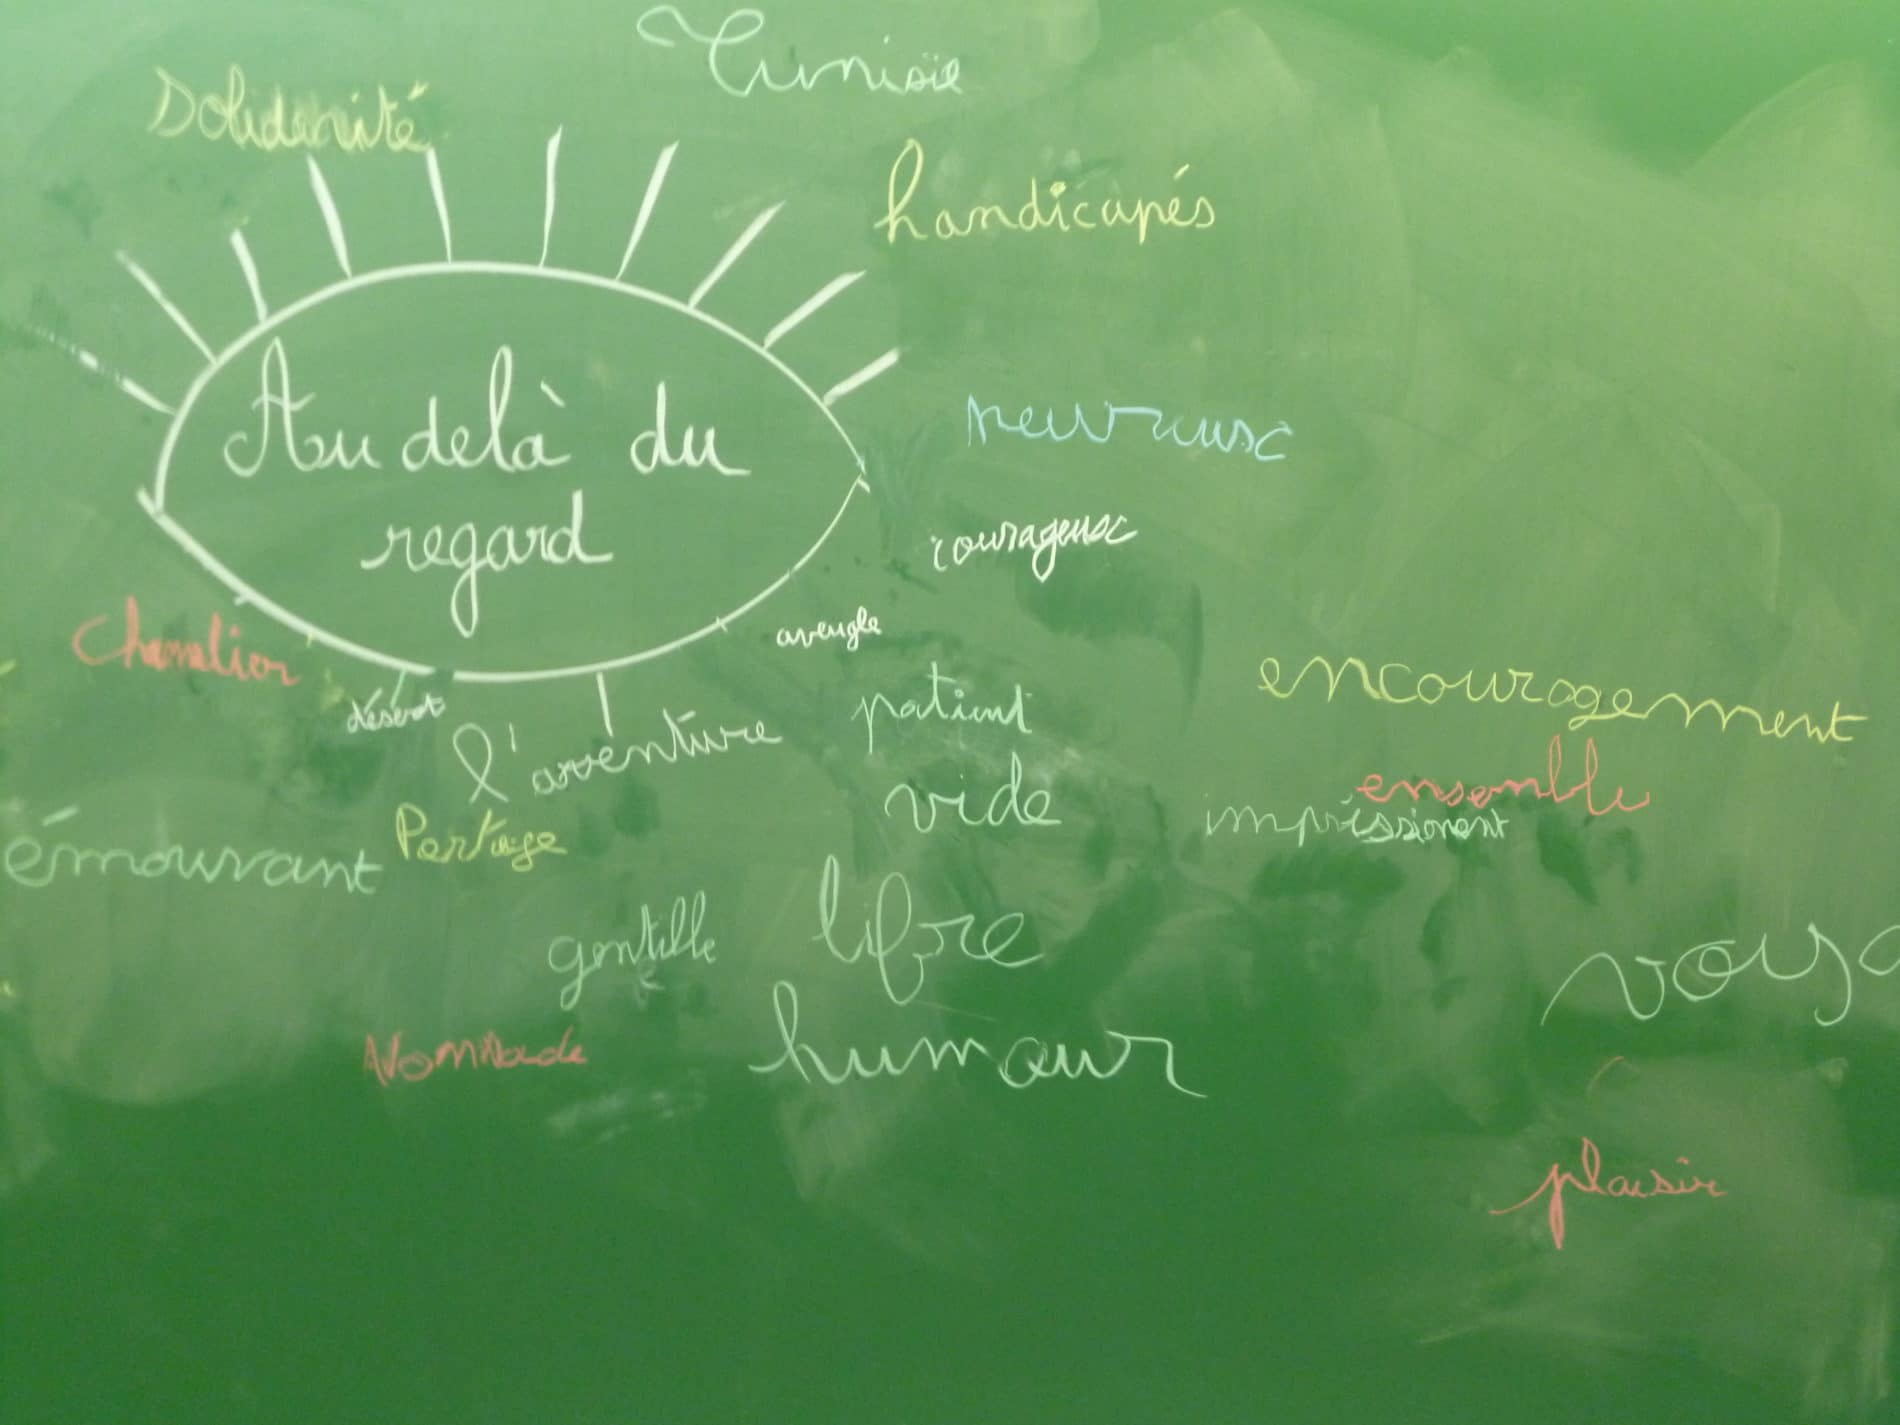 Tunisie
Solidarité
handicapés
Au delà du
regard
courageuse
aveugle
Chamelier
désert
l'aventure
patient
encouragement
ensemble
vide
impressionant
Partage
émouvant
gentille
libre
voya
Nomade
humour
plaisir